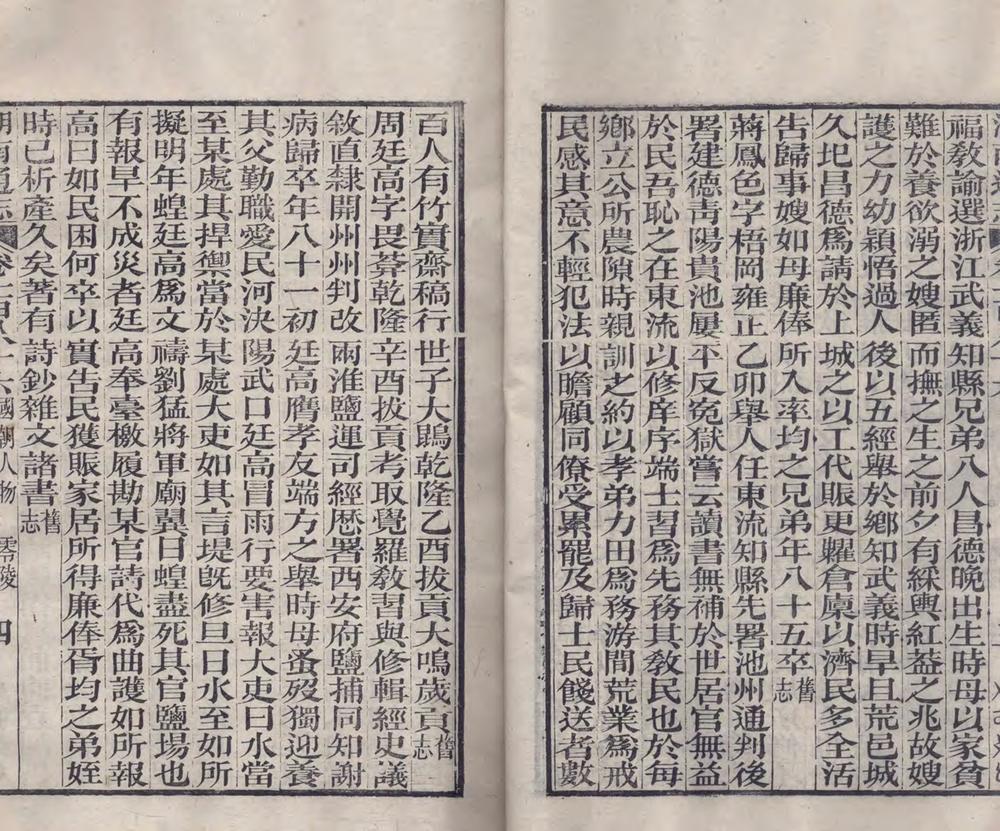 福教諭選浙江武義知縣兄弟八人昌德晚出生時母以家貧
難於養欲溺之嫂匿而撫之生之前夕有綵輿紅葢之兆故嫂
護之力幼穎悟過人後以五經舉於鄉知武義時旱且荒邑城
久圮昌德爲請於上城之以工代賑更糶倉廩以濟民多全活
告歸事嫂如母廉俸所入率均之兄弟年八十五卒舊志
蔣鳳色字梧岡雍正乙卯舉人任東流知縣先署池州通判後
署建德青陽貴池屢平反寃獄嘗云讀書無補於世居官無益
於民吾恥之在東流以修庠序端士習爲先務其教民也於每
鄉立公所農隙時親訓之約以孝弟力田爲務游閒荒業爲戒
民感其意不輕犯法以瞻顧同僚受累罷及歸士民餞送者數
百人有竹實齋稿行世子大鵾乾隆乙酉拔貢大鳴歲貢舊志
周廷高字畏莽乾隆辛酉拔貢考取覺羅教習與修輯經史議
敘直隸開州州判改兩淮鹽運司經歷署西安府鹽捕同知謝
病歸卒年八十一初廷高膺孝友端方之舉時母蚤歿獨迎養
其父勤職愛民河決陽武口廷高冒雨行要害報大吏曰水當
至某處其捍禦當於某處大吏如其言堤旣修旦日水至如所
擬明年蝗廷高爲文禱劉猛將軍廟翼日蝗盡死其官鹽場也
有報旱不成災者廷高奉臺檄履勘某官詩代爲曲護如所報
高曰如民困何卒以實告民獲賑家居所得廉俸胥均之弟姪
時已析產久矣著有詩鈔雜文諸書舊志
國朝人物 零陵 四